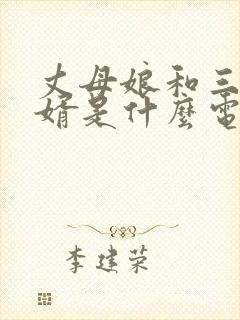 丈母娘和三
婿是什麼電
李建荣